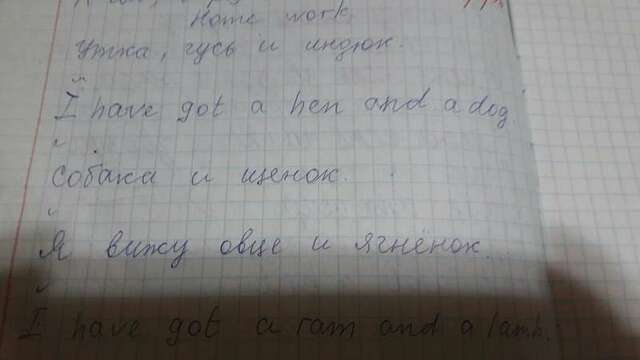 Home work
Утка, гусь и индюк.
I have got a hen and a dog.
Собака и щенок.
Я вижу овце и ягнёнок.
I have got a ram and a lamb.